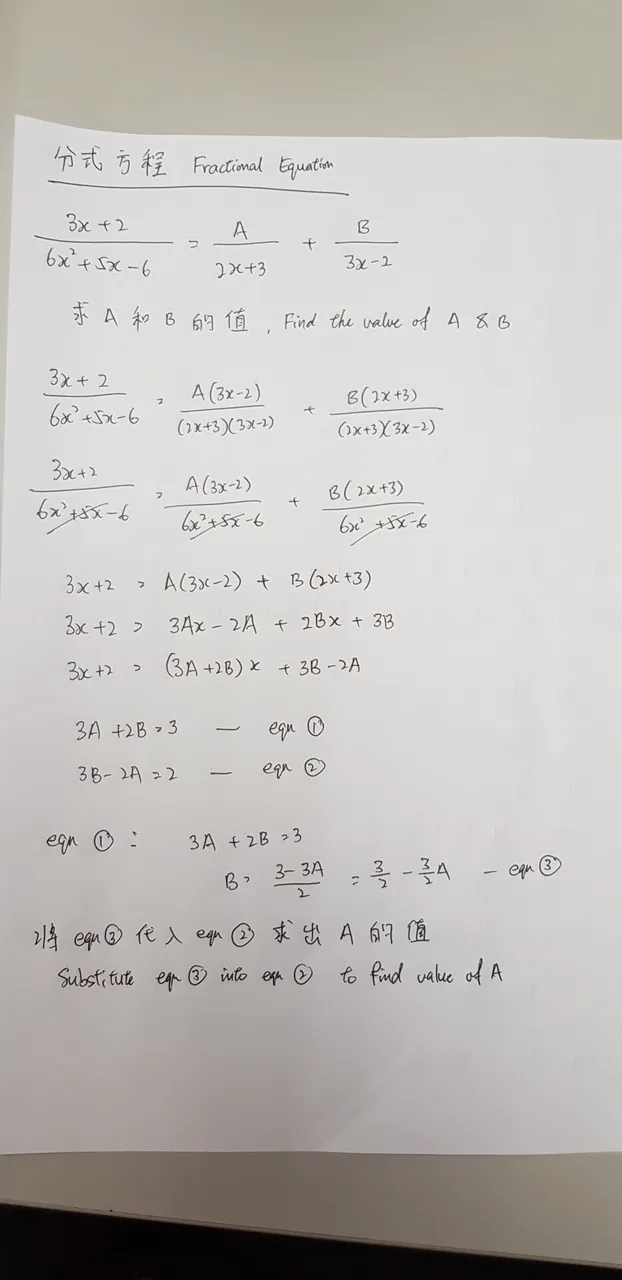 分式方程 Fractional Equation
(3x+2)/(6x²+5x-6) = A/(2x+3) + B/(3x-2)
求 A 和 B 的值, Find the value of A & B
(3x+2)/(6x²+5x-6) = A(3x-2)/((2x+3)(3x-2)) + B(2x+3)/((2x+3)(3x-2))
(3x+2)/(6x²+5x-6) = A(3x-2)/(6x²+5x-6) + B(2x+3)/(6x²+5x-6)
3x+2 = A(3x-2) + B(2x+3)
3x+2 = 3Ax - 2A + 2Bx + 3B
3x+2 = (3A+2B)x + 3B-2A
3A+2B=3 — eqn ①
3B-2A=2 — eqn ②
eqn ①: 3A+2B=3
B = (3-3A)/2 = 3/2 - 3/2 A — eqn ③
将 eqn ③ 代入 eqn ② 求出 A 的值
Substitute eqn ③ into eqn ② to find value of A